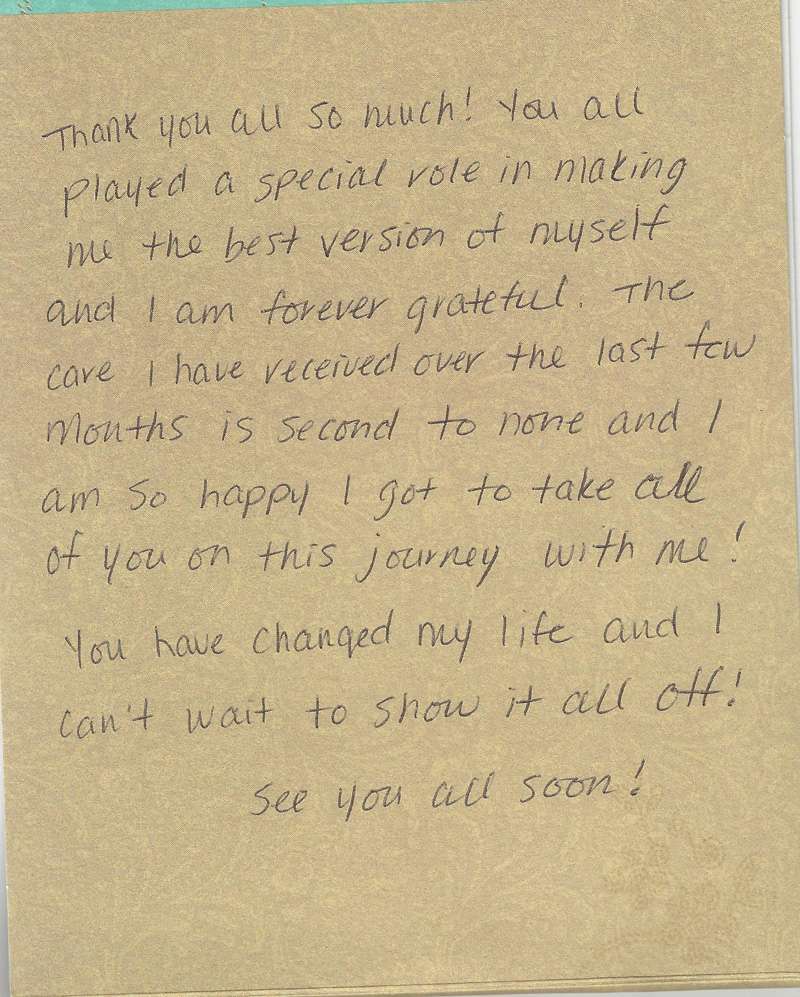 Thank you all so much! You all
played a special role in making
me the best version of myself
and I am forever grateful. The
care I have received over the last few
months is second to none and I
am so happy I got to take all
of you on this journey with me!
You have changed my life and I
can't wait to show it all off!
See you all soon!